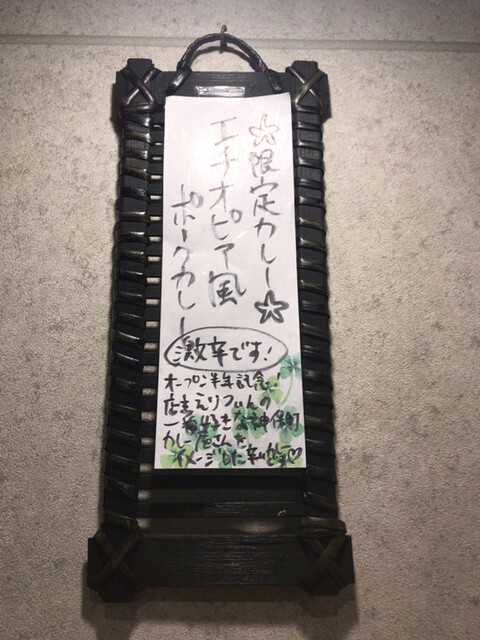 ☆限定カレー☆
エチオピア風
ポークカレー
激辛です!
オープン半年記念!
店主えりつぃんの
一番好きな神保町
カレー屋さんを
イメージした辛いカレーです♡